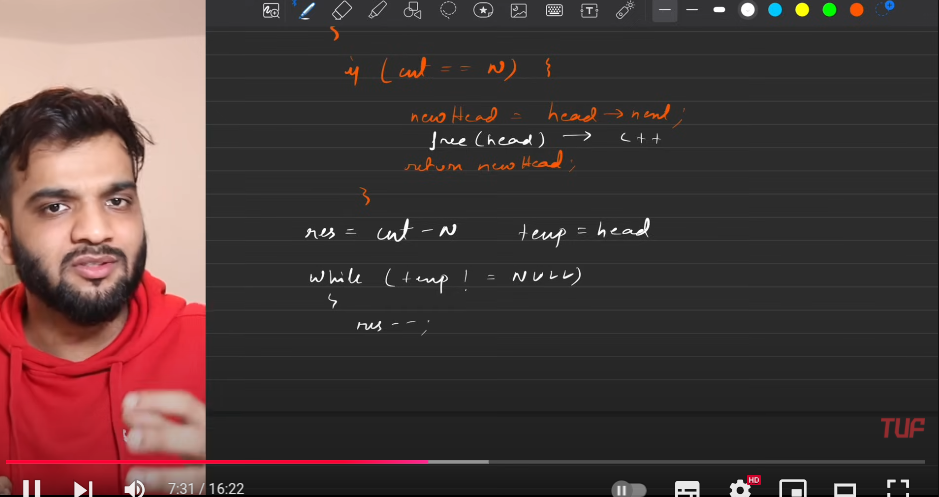 }
if (cnt == N) {
newHead = head → next;
free(head) → C++
return newHead;
}
res = cnt - N temp = head
while (temp != NULL)
{
res--;
TUF
HD
7:31 / 16:22